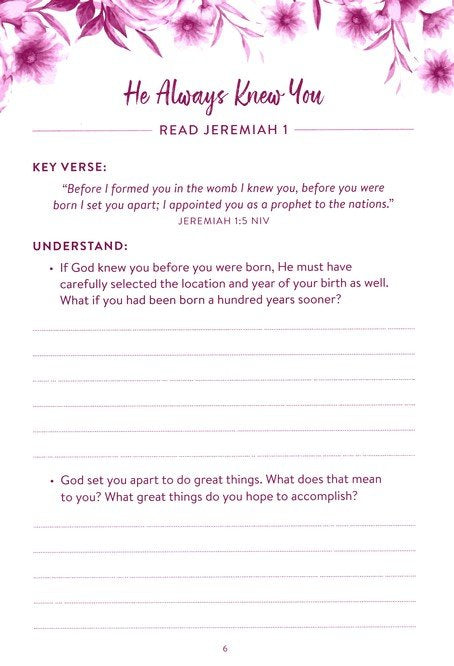 He Always Knew You
READ JEREMIAH 1
KEY VERSE:
“Before I formed you in the womb I knew you, before you were
born I set you apart; I appointed you as a prophet to the nations.”
JEREMIAH 1:5 NIV
UNDERSTAND:
• If God knew you before you were born, He must have
carefully selected the location and year of your birth as well.
What if you had been born a hundred years sooner?
• God set you apart to do great things. What does that mean
to you? What great things do you hope to accomplish?
6